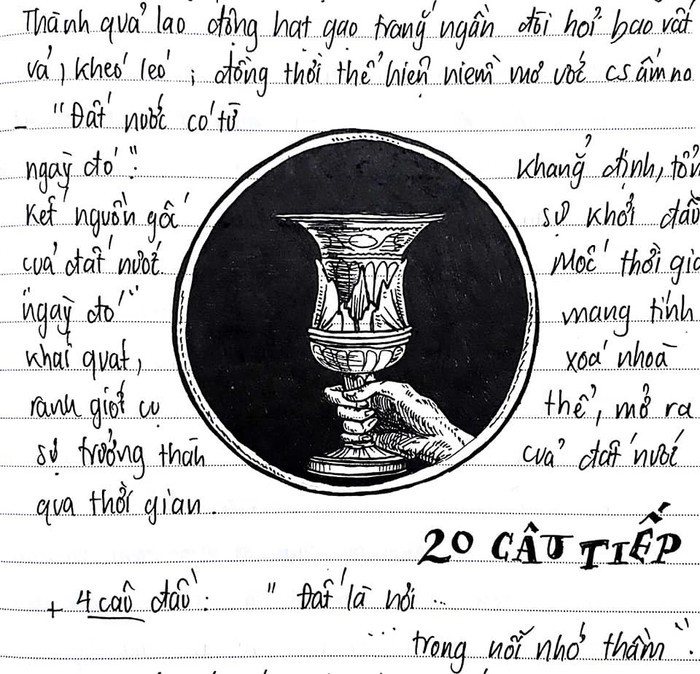 Thành quả lao động hạt gạo trắng ngần đòi hỏi bao vất
vả, khéo léo; đồng thời thể hiện niềm mơ ước cs ấm no
- "Đất nước có từ
ngày đó": Khẳng định, tổn
Kết nguồn gốc sự khởi đầu
của đất nước. Mốc thời gia
"ngày đó" mang tính
khái quát, xoá nhoà
ranh giới cụ thể, mở ra
sự trưởng thàn của đất nước
qua thời gian.
20 CÂU TIẾP
+ 4 câu đầu: " Đất là nơi ..
... trong nỗi nhớ thầm".